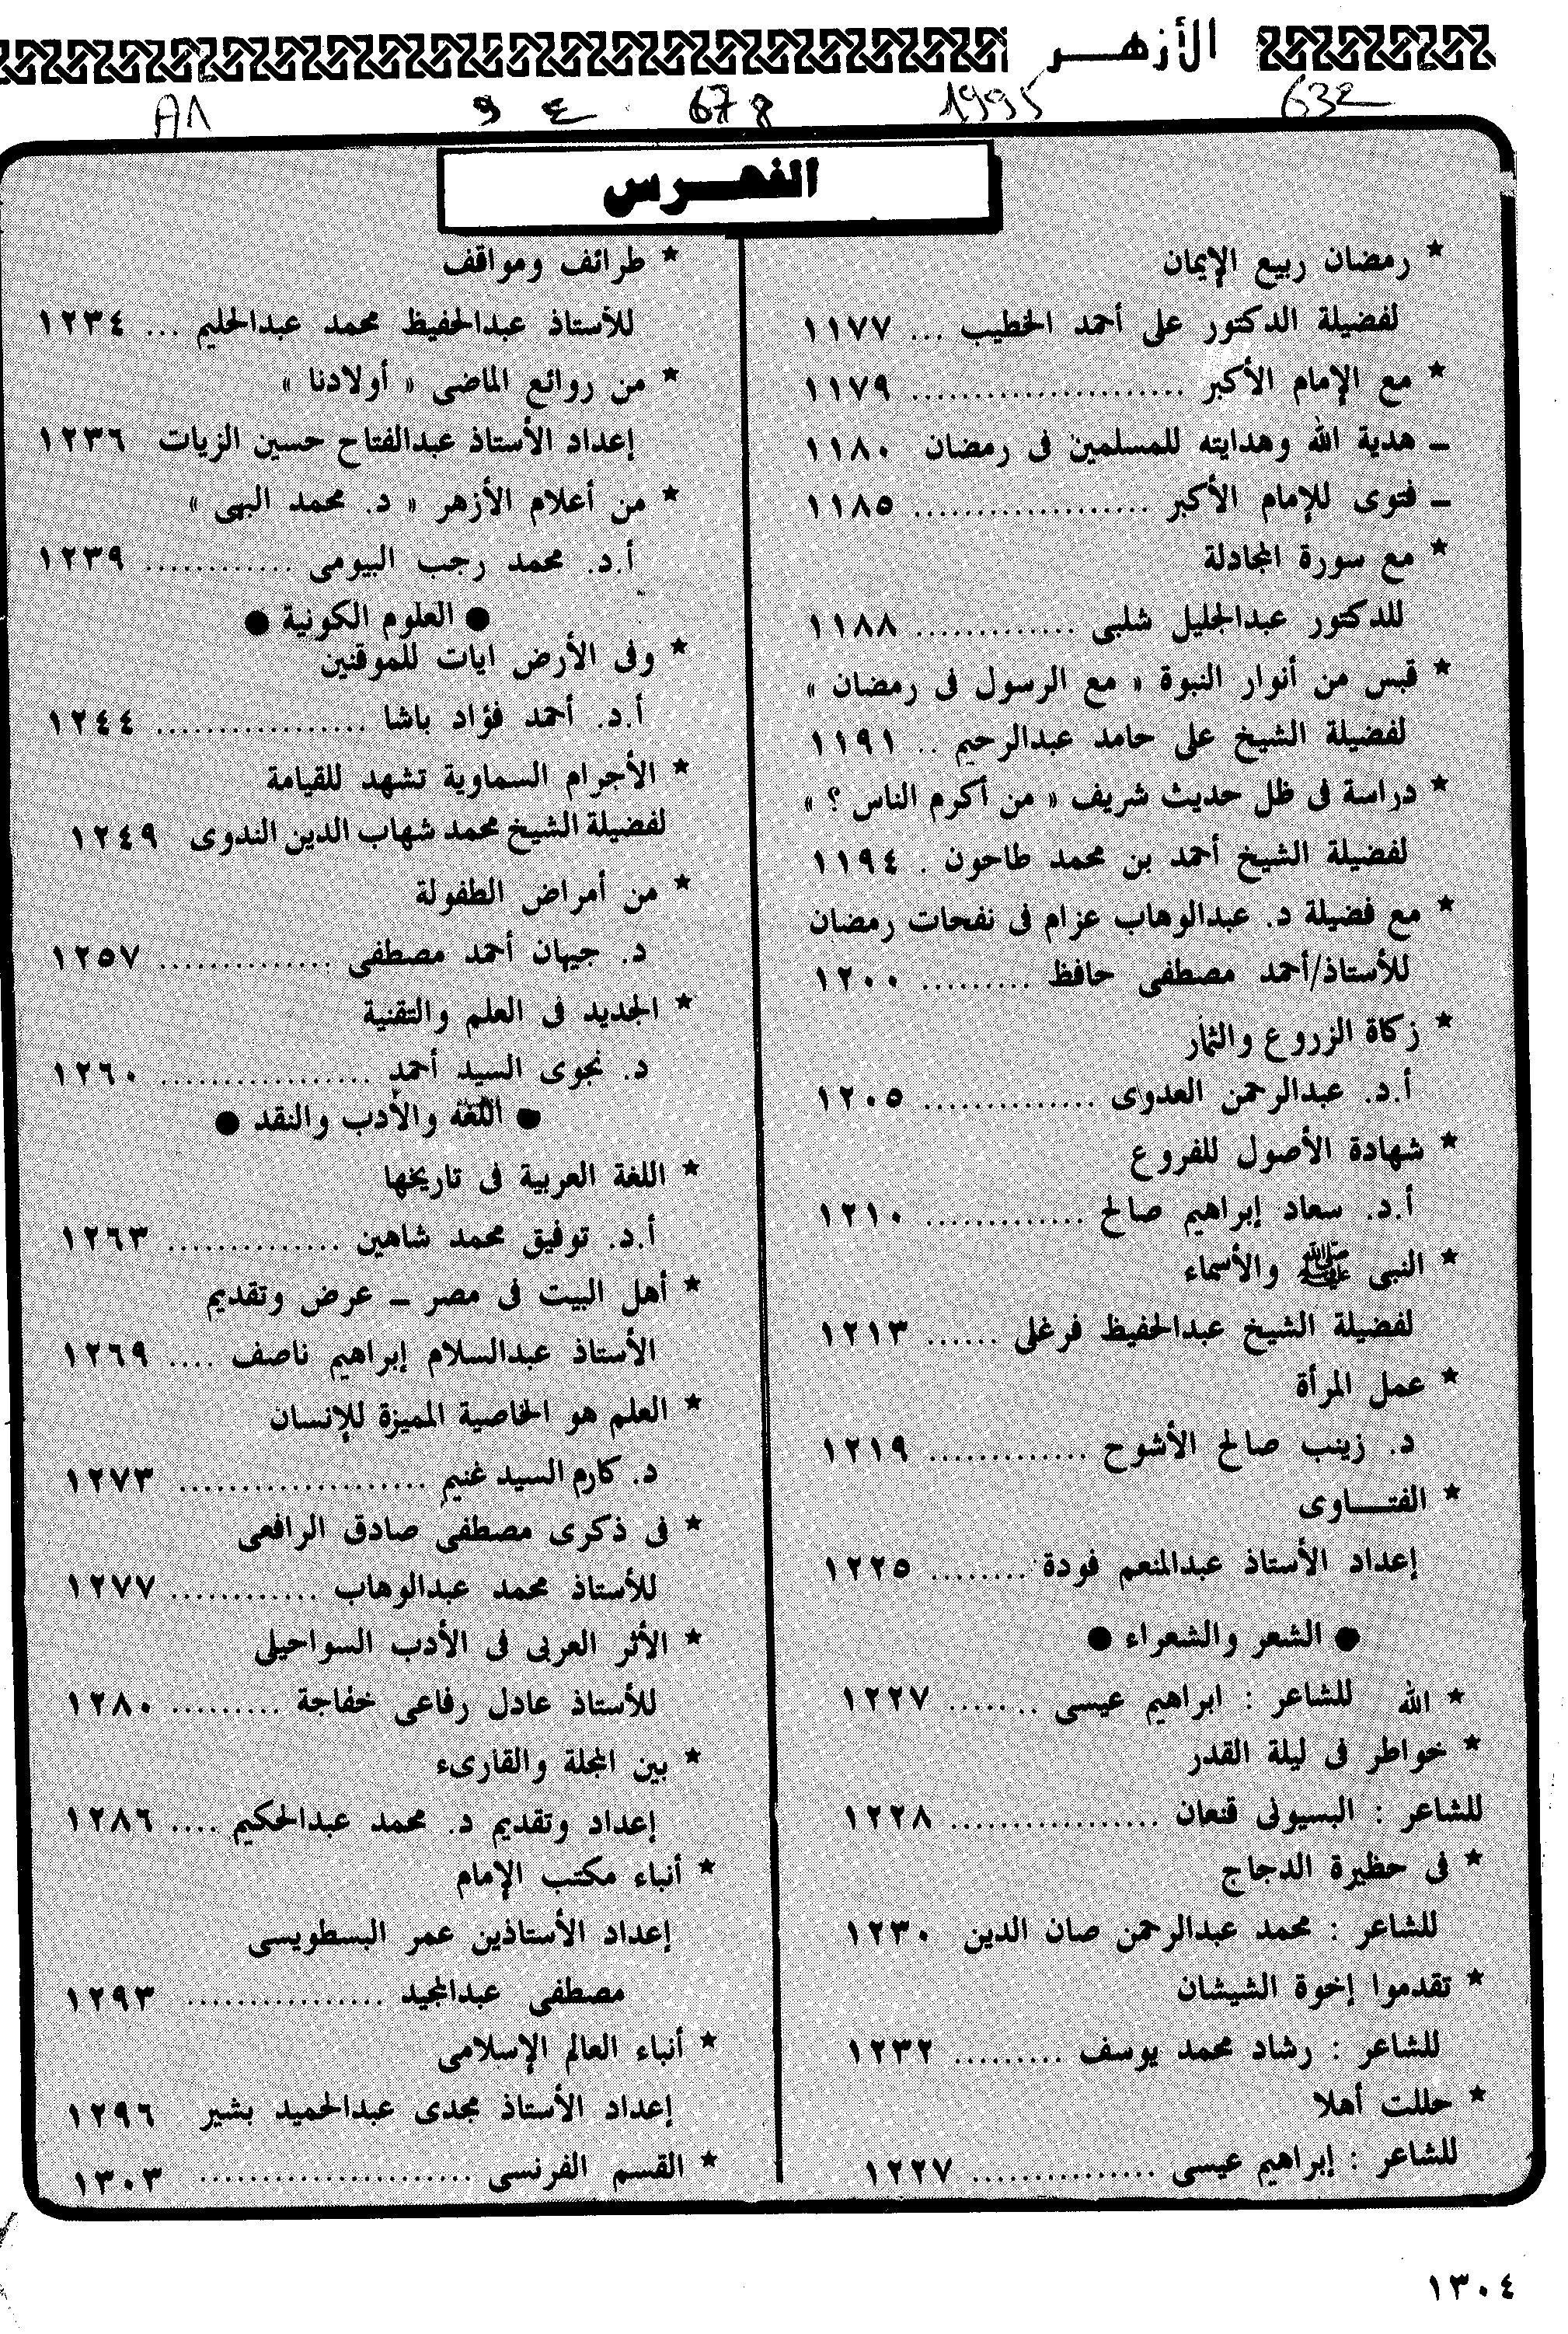 الأزهـــر
632
1995
678
ع و
A1
الفهـــرس
* رمضان ربيع الإيمان
لفضيلة الدكتور على أحمد الخطيب ... ١١٧٧
* مع الإمام الأكبر ...................... ١١٧٩
ـ هدية الله وهدايته للمسلمين فى رمضان ١١٨٠
ـ فتوى للإمام الأكبر ................... ١١٨٥
* مع سورة المجادلة
للدكتور عبدالجليل شلبى ............. ١١٨٨
* قبس من أنوار النبوة « مع الرسول فى رمضان »
لفضيلة الشيخ على حامد عبدالرحيم .. ١١٩١
* دراسة فى ظل حديث شريف « من أكرم الناس ؟ »
لفضيلة الشيخ أحمد بن محمد طاحون . ١١٩٤
* مع فضيلة د. عبدالوهاب عزام فى نفحات رمضان
للأستاذ/أحمد مصطفى حافظ ......... ١٢٠٠
* زكاة الزروع والثمار
أ.د. عبدالرحمن العدوى .............. ١٢٠٥
* شهادة الأصول للفروع
أ.د. سعاد إبراهيم صالح ............. ١٢١٠
* النبى ﷺ والأسماء
لفضيلة الشيخ عبدالحفيظ فرغلى ...... ١٢١٣
* عمل المرأة
د. زينب صالح الأشوح ............. ١٢١٩
* الفتـــاوى
إعداد الأستاذ عبدالمنعم فودة ........ ١٢٢٥
● الشعر والشعراء ●
* الله للشاعر : ابراهيم عيسى ...... ١٢٢٧
* خواطر فى ليلة القدر
للشاعر : البسيونى قنعان ................. ١٢٢٨
* فى حظيرة الدجاج
للشاعر : محمد عبدالرحمن صان الدين ١٢٣٠
* تقدموا إخوة الشيشان
للشاعر : رشاد محمد يوسف ......... ١٢٣٢
* حللت أهلا
للشاعر : إبراهيم عيسى ............... ١٢٢٧
* طرائف ومواقف
للأستاذ عبدالحفيظ محمد عبدالحليم ... ١٢٣٤
* من روائع الماضى « أولادنا »
إعداد الأستاذ عبدالفتاح حسين الزيات ١٢٣٦
* من أعلام الأزهر « د. محمد البهى »
أ.د. محمد رجب البيومى ............ ١٢٣٩
● العلوم الكونية ●
* وفى الأرض ايات للموقنين
أ.د. أحمد فؤاد باشا ................. ١٢٤٤
* الأجرام السماوية تشهد للقيامة
لفضيلة الشيخ محمد شهاب الدين الندوى ١٢٤٩
* من أمراض الطفولة
د. جيهان أحمد مصطفى .............. ١٢٥٧
* الجديد فى العلم والتقنية
د. نجوى السيد أحمد ................. ١٢٦٠
● اللغة والأدب والنقد ●
* اللغة العربية فى تاريخها
أ.د. توفيق محمد شاهين .............. ١٢٦٣
* أهل البيت فى مصر ـ عرض وتقديم
الأستاذ عبدالسلام إبراهيم ناصف .... ١٢٦٩
* العلم هو الخاصية المميزة للإنسان
د. كارم السيد غنيم .................... ١٢٧٣
* فى ذكرى مصطفى صادق الرافعى
للأستاذ محمد عبدالوهاب ............ ١٢٧٧
* الأثر العربى فى الأدب السواحيلى
للأستاذ عادل رفاعى خفاجة ......... ١٢٨٠
* بين المجلة والقارىء
إعداد وتقديم د. محمد عبدالحكيم .... ١٢٨٦
* أنباء مكتب الإمام
إعداد الأستاذين عمر البسطويسى
مصطفى عبدالمجيد ................ ١٢٩٣
* أنباء العالم الإسلامى
إعداد الأستاذ مجدى عبدالحميد بشير ١٢٩٦
* القسم الفرنسى ...................... ١٣٠٣
١٣٠٤